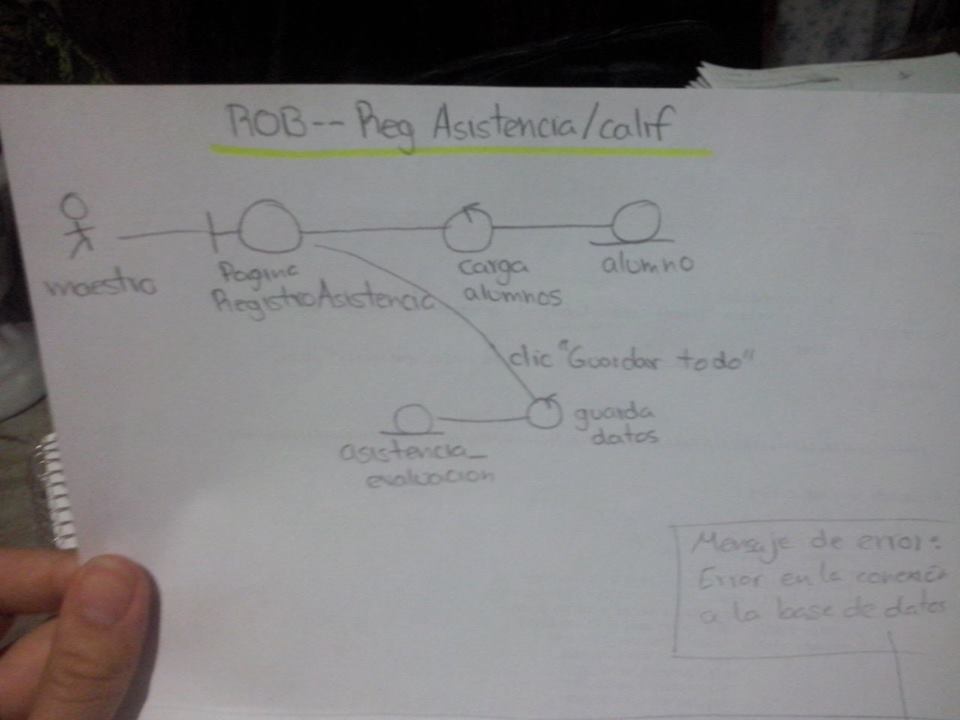 ROB-- Reg Asistencia/calif
maestro
Pagina
RegistroAsistencia
carga
alumnos
alumno
clic "Guardar todo"
guarda
datos
asistencia_
evaluacion
Mensaje de error:
Error en la conexió
a la base de datos